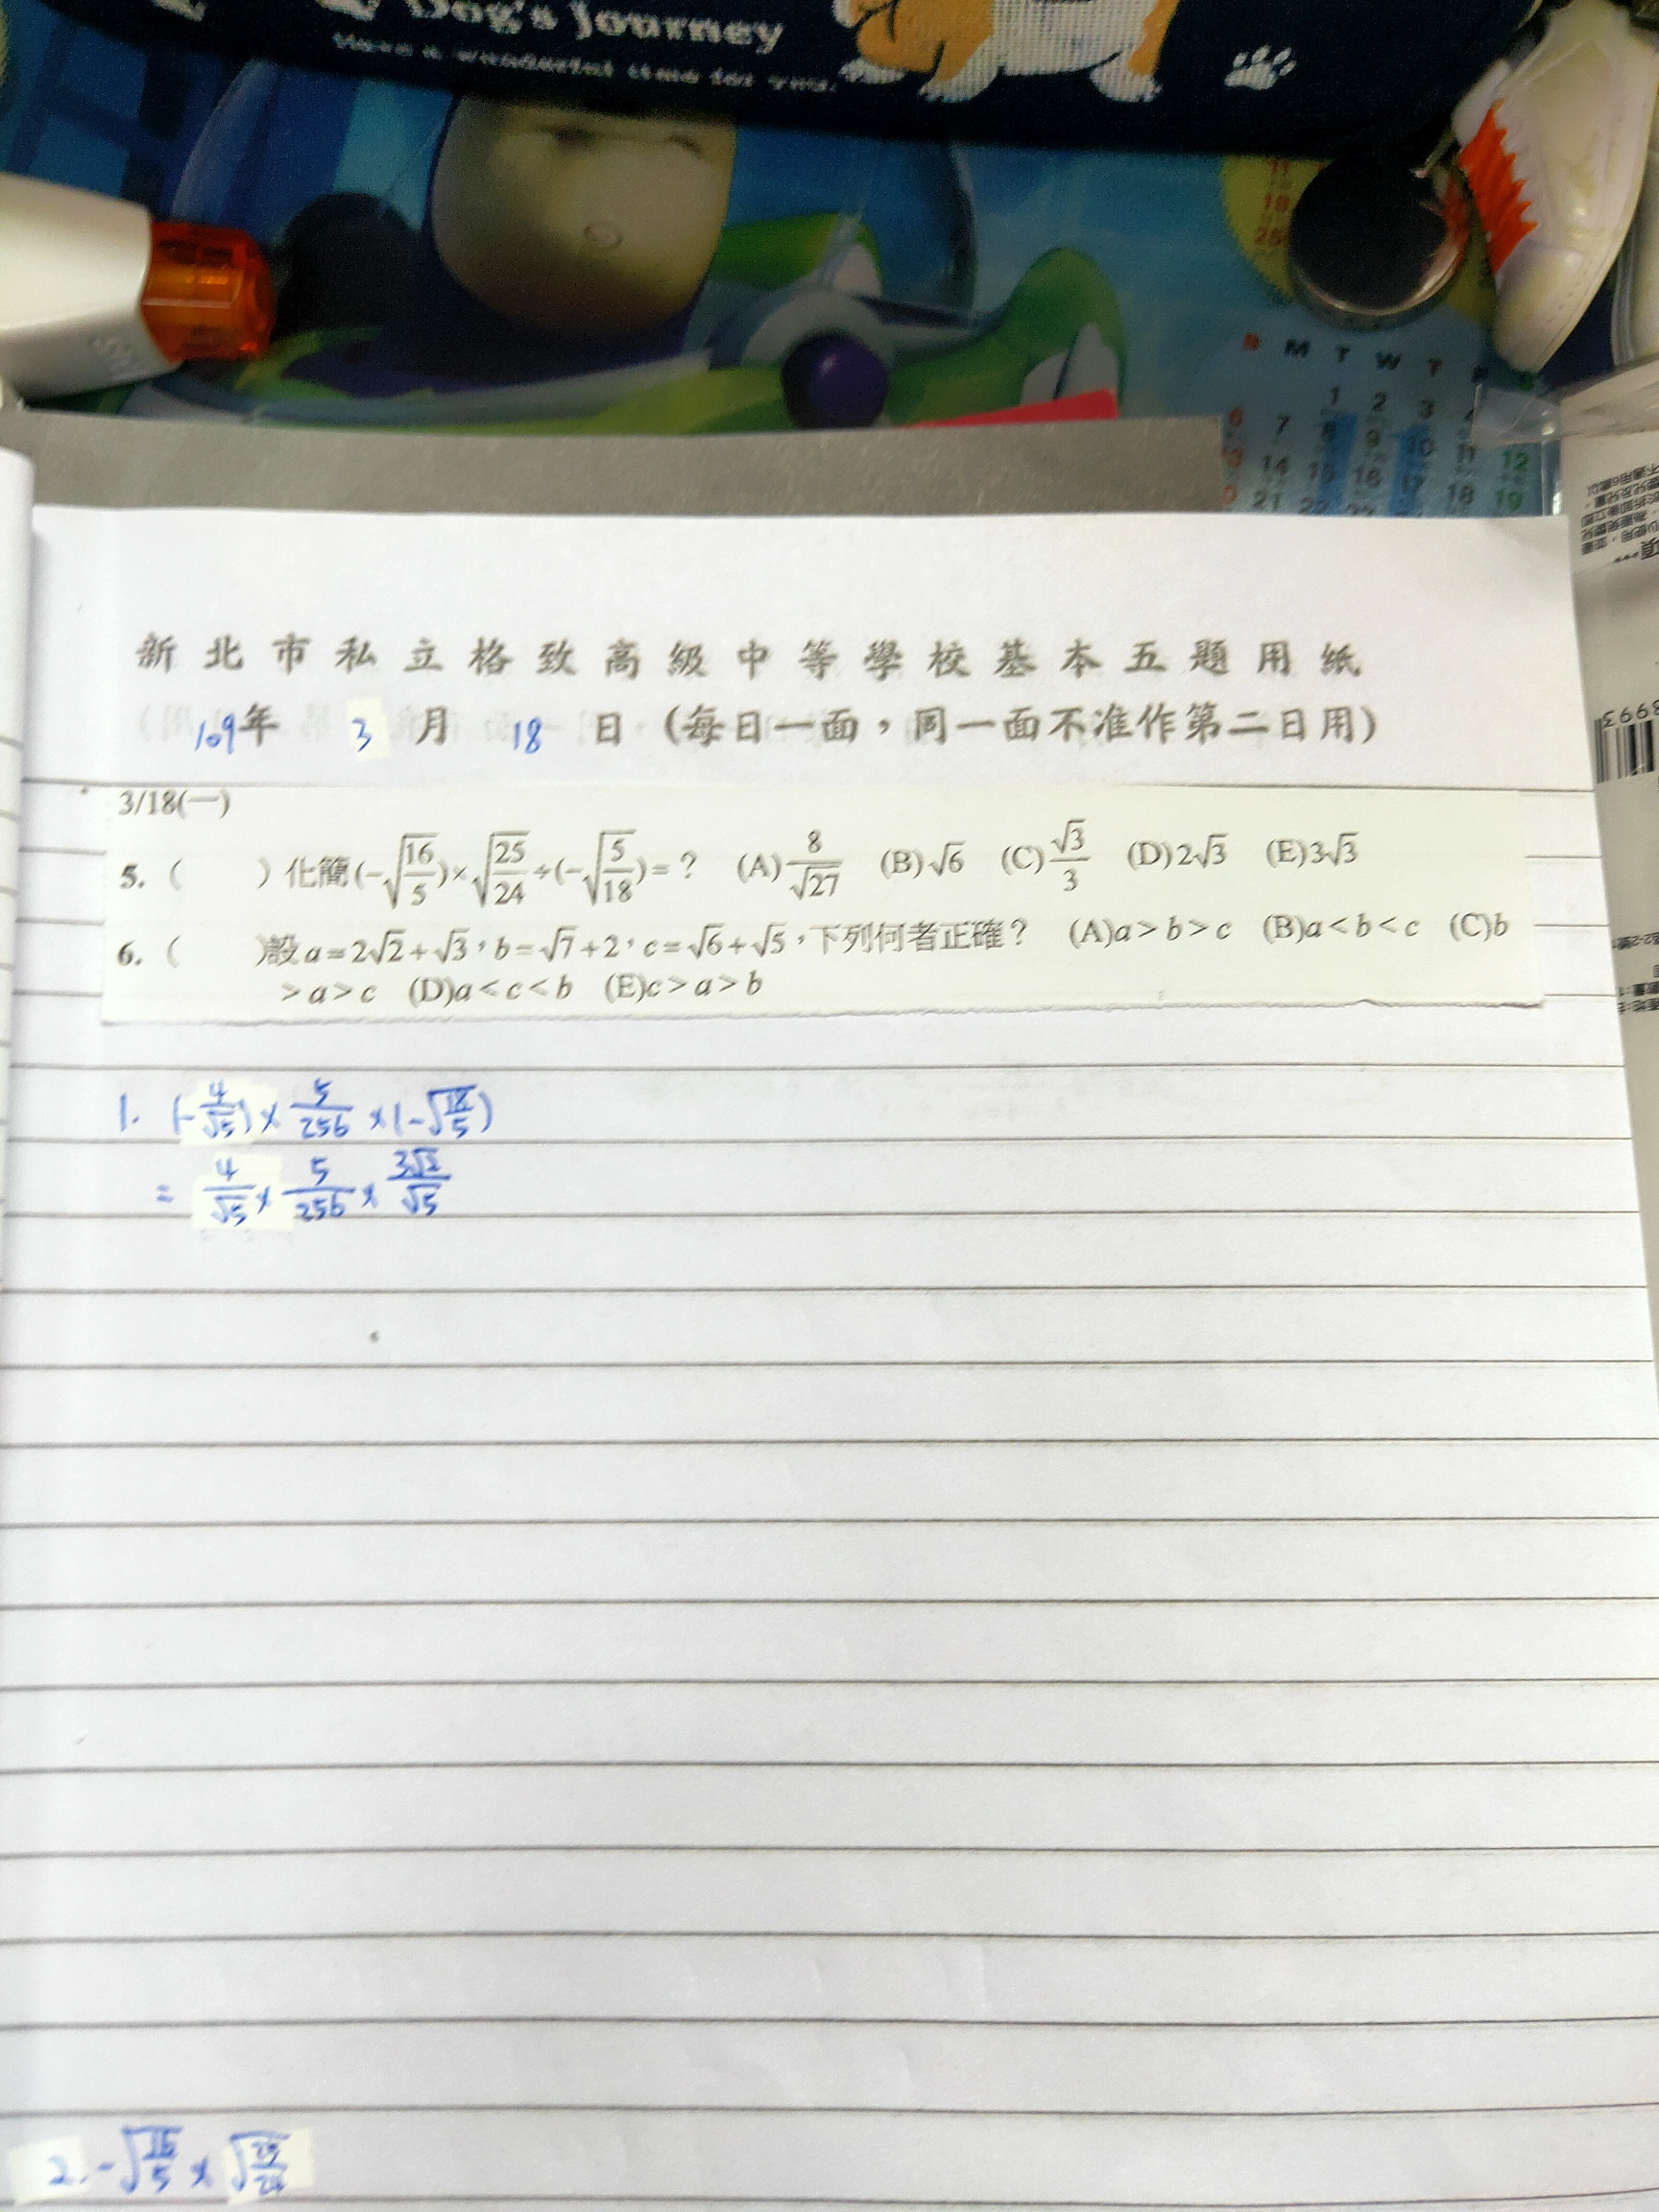 Dog's Journey
Have a wonderful time for you.
11
18
25
S M T W T F S
1 2 3 4
6 7 8 9 10 11 12
13 14 15 16 17 18 19
21
新北市私立格致高級中等學校基本五題用紙
109年 3 月 18 日 (每日一面，同一面不准作第二日用)
3/18(一)
5. ( ) 化簡(-√(16/5))×√(25/24)÷(-√(5/18))=? (A) 8/√27 (B)√6 (C) √3/3 (D)2√3 (E)3√3
6. ( )設a=2√2+√3，b=√7+2，c=√6+√5，下列何者正確？ (A)a>b>c (B)a<b<c (C)b
>a>c (D)a<c<b (E)c>a>b
1. (-4/√5)×5/2√6×(-√(18/5))
= 4/√5×5/2√6×3√2/√5
2. -√(16/5)×√(25/24)